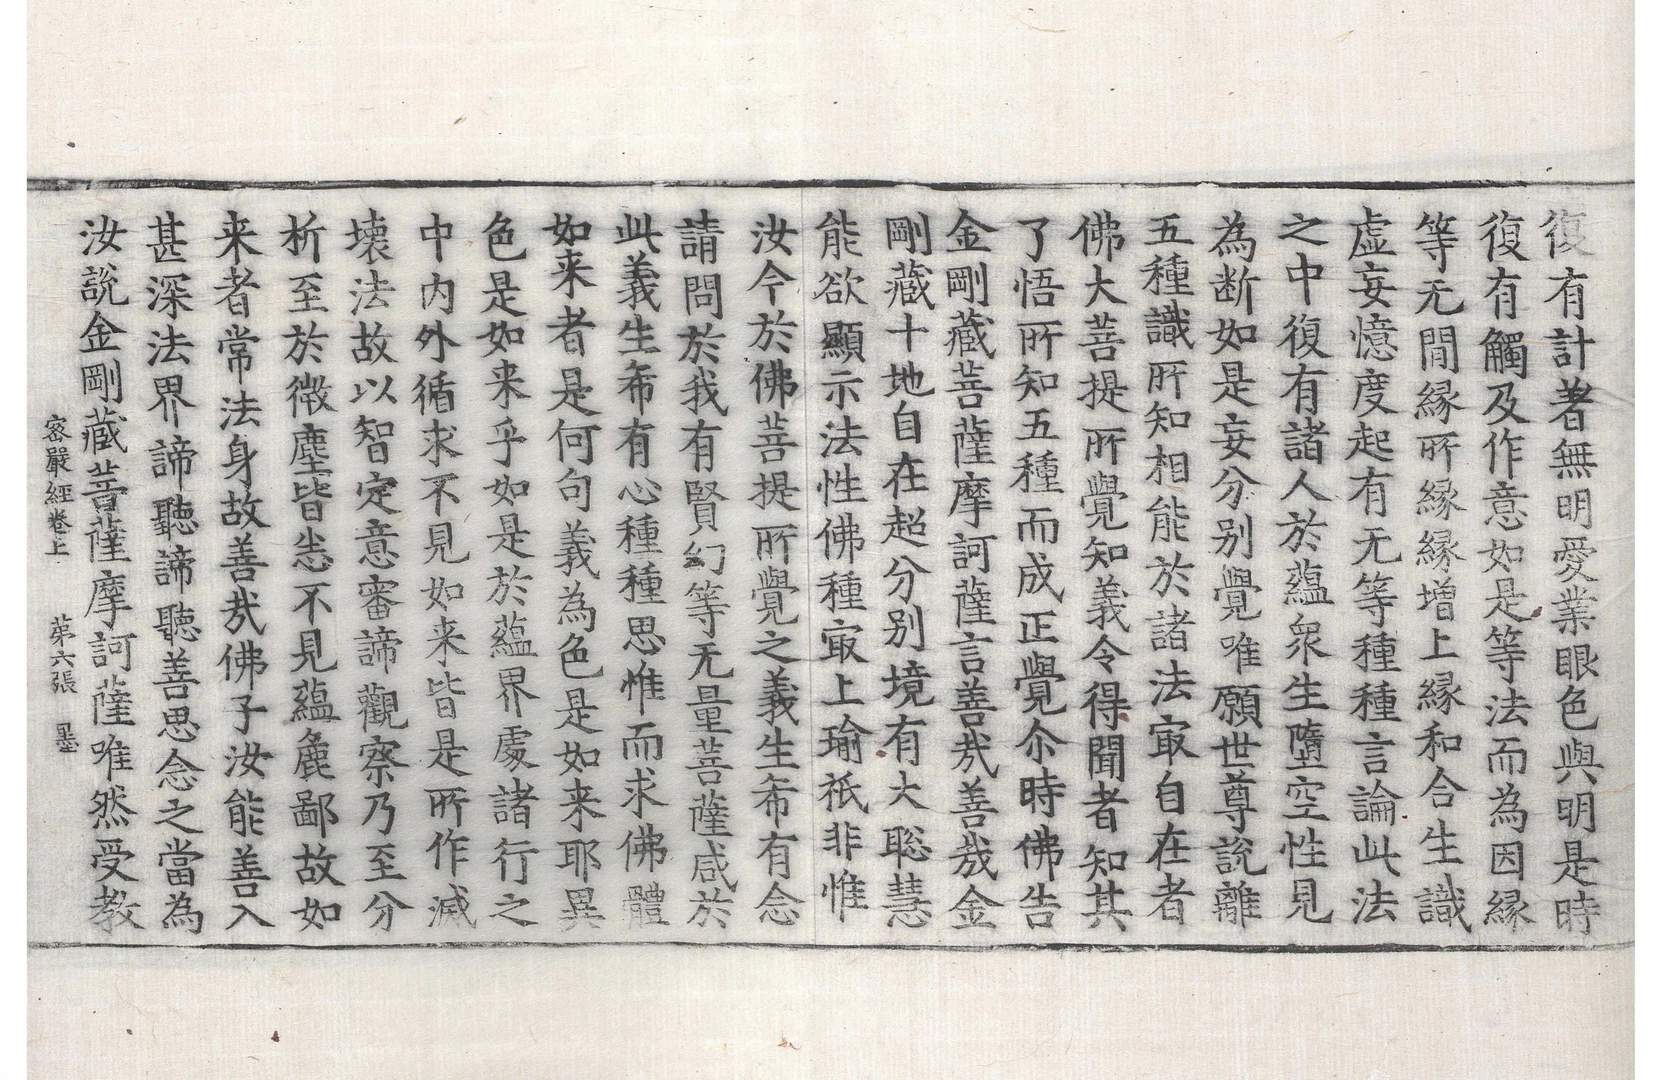 復有計著無明愛業眼色與明是時
復有觸及作意如是等法而為因緣
等无間緣所緣緣增上緣和合生識
虛妄憶度起有无等種種言論此法
之中復有諸人於蘊衆生墮空性見
為断如是妄分别覺唯願世尊説離
五種識所知相能於諸法㝡自在者
佛大菩提所覺知義令得聞者知其
了悟所知五種而成正覺尒時佛告
金剛藏菩薩摩訶薩言善㢤善㢤金
剛藏十地自在超分别境有大聡慧
能欲顯示法性佛種㝡上瑜祇非惟
汝今於佛菩提所覺之義生希有念
請問於我有賢幻等无量菩薩咸於
此義生希有心種種思惟而求佛體
如来者是何句義為色是如来耶異
色是如来乎如是於蘊界處諸行之
中内外循求不見如来皆是所作滅
壊法故以智定意審諦觀察乃至分
析至於微塵皆悉不見蘊麁鄙故如
来者常法身故善㢤佛子汝能善入
甚深法界諦聽諦聽善思念之當為
汝説金剛藏菩薩摩訶薩唯然受教
密嚴經卷上 苐六張 墨